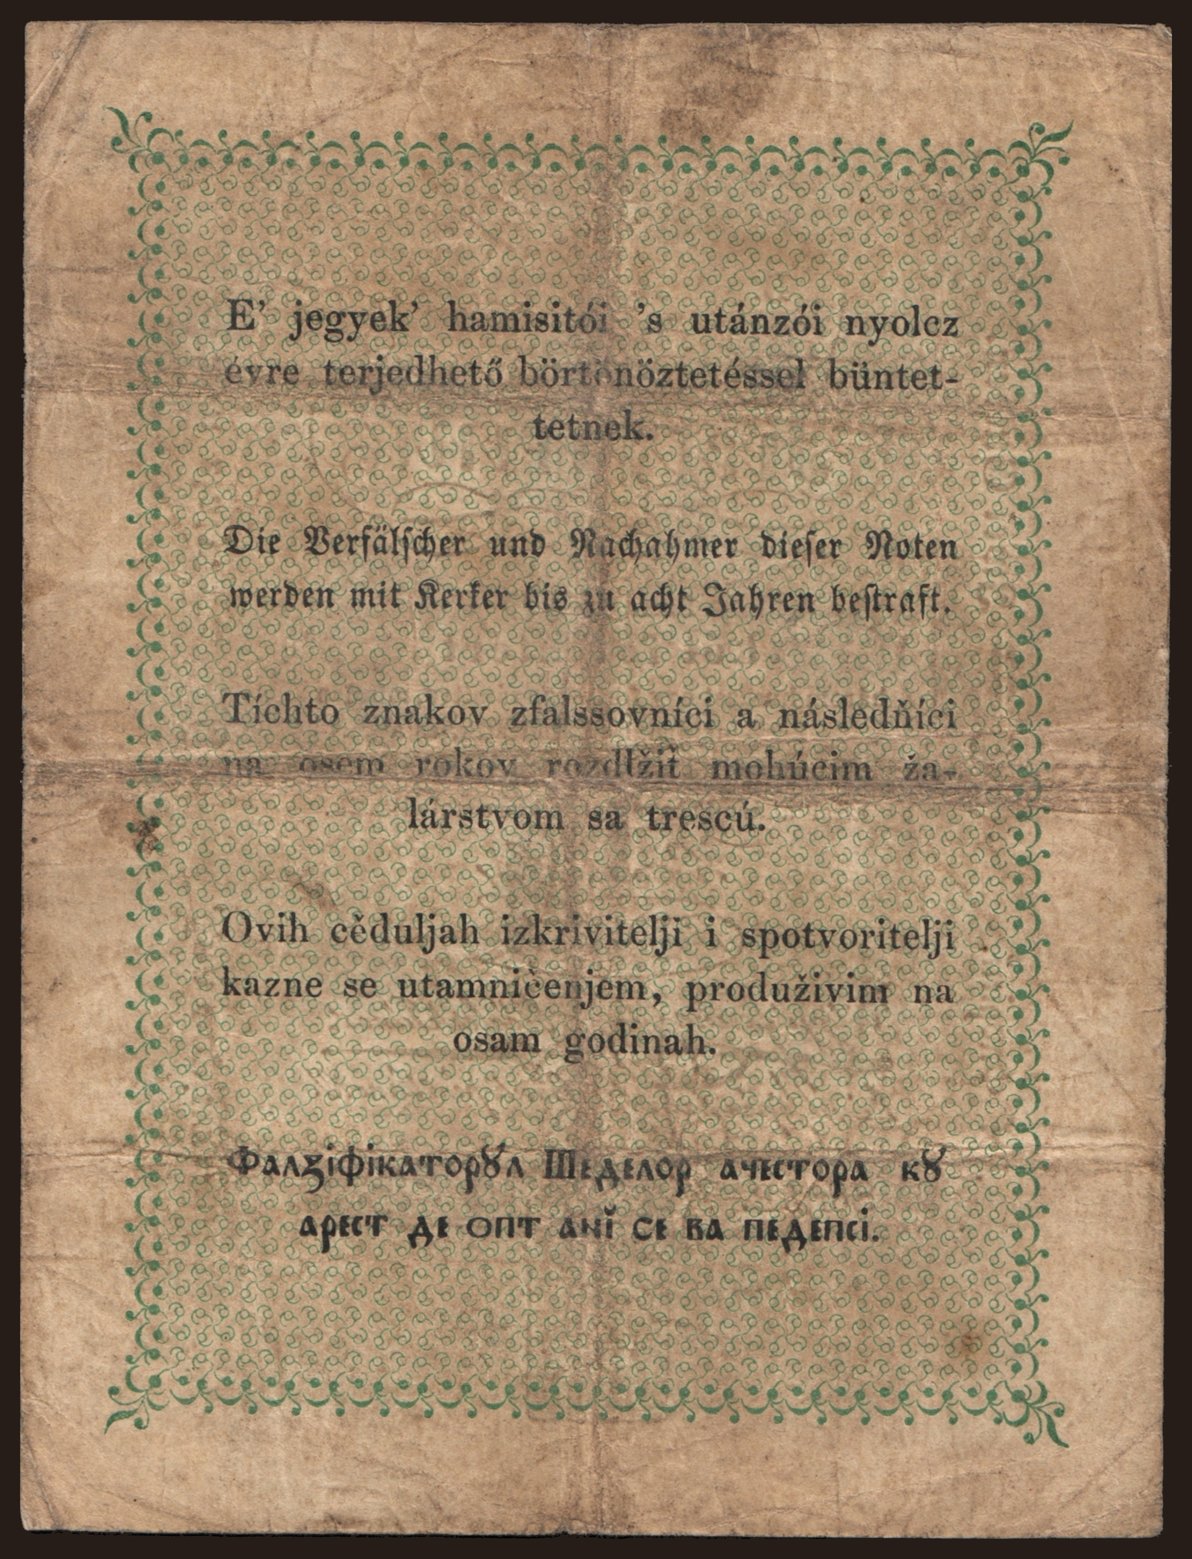 E’ jegyek’ hamisitói ’s utánzói nyolcz
évre terjedhető börtönöztetéssel büntet-
tetnek.
Die Verfälscher und Nachahmer dieser Noten
werden mit Kerker bis zu acht Jahren bestraft.
Tíchto znakov zfalssovníci a následňíci
na osem rokov rozdlžiť mohúcim ža-
lárstvom sa trescú.
Ovih cěduljah izkrivitelji i spotvoritelji
kazne se utamničenjem, produživim na
osam godinah.
Фалꙁіфікаторꙋл Шеделор ачестора кꙋ
арест де опт анĭ се ва педепсі.